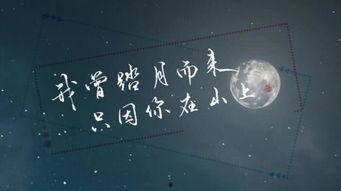 我曾踏月而来
只因你在山上